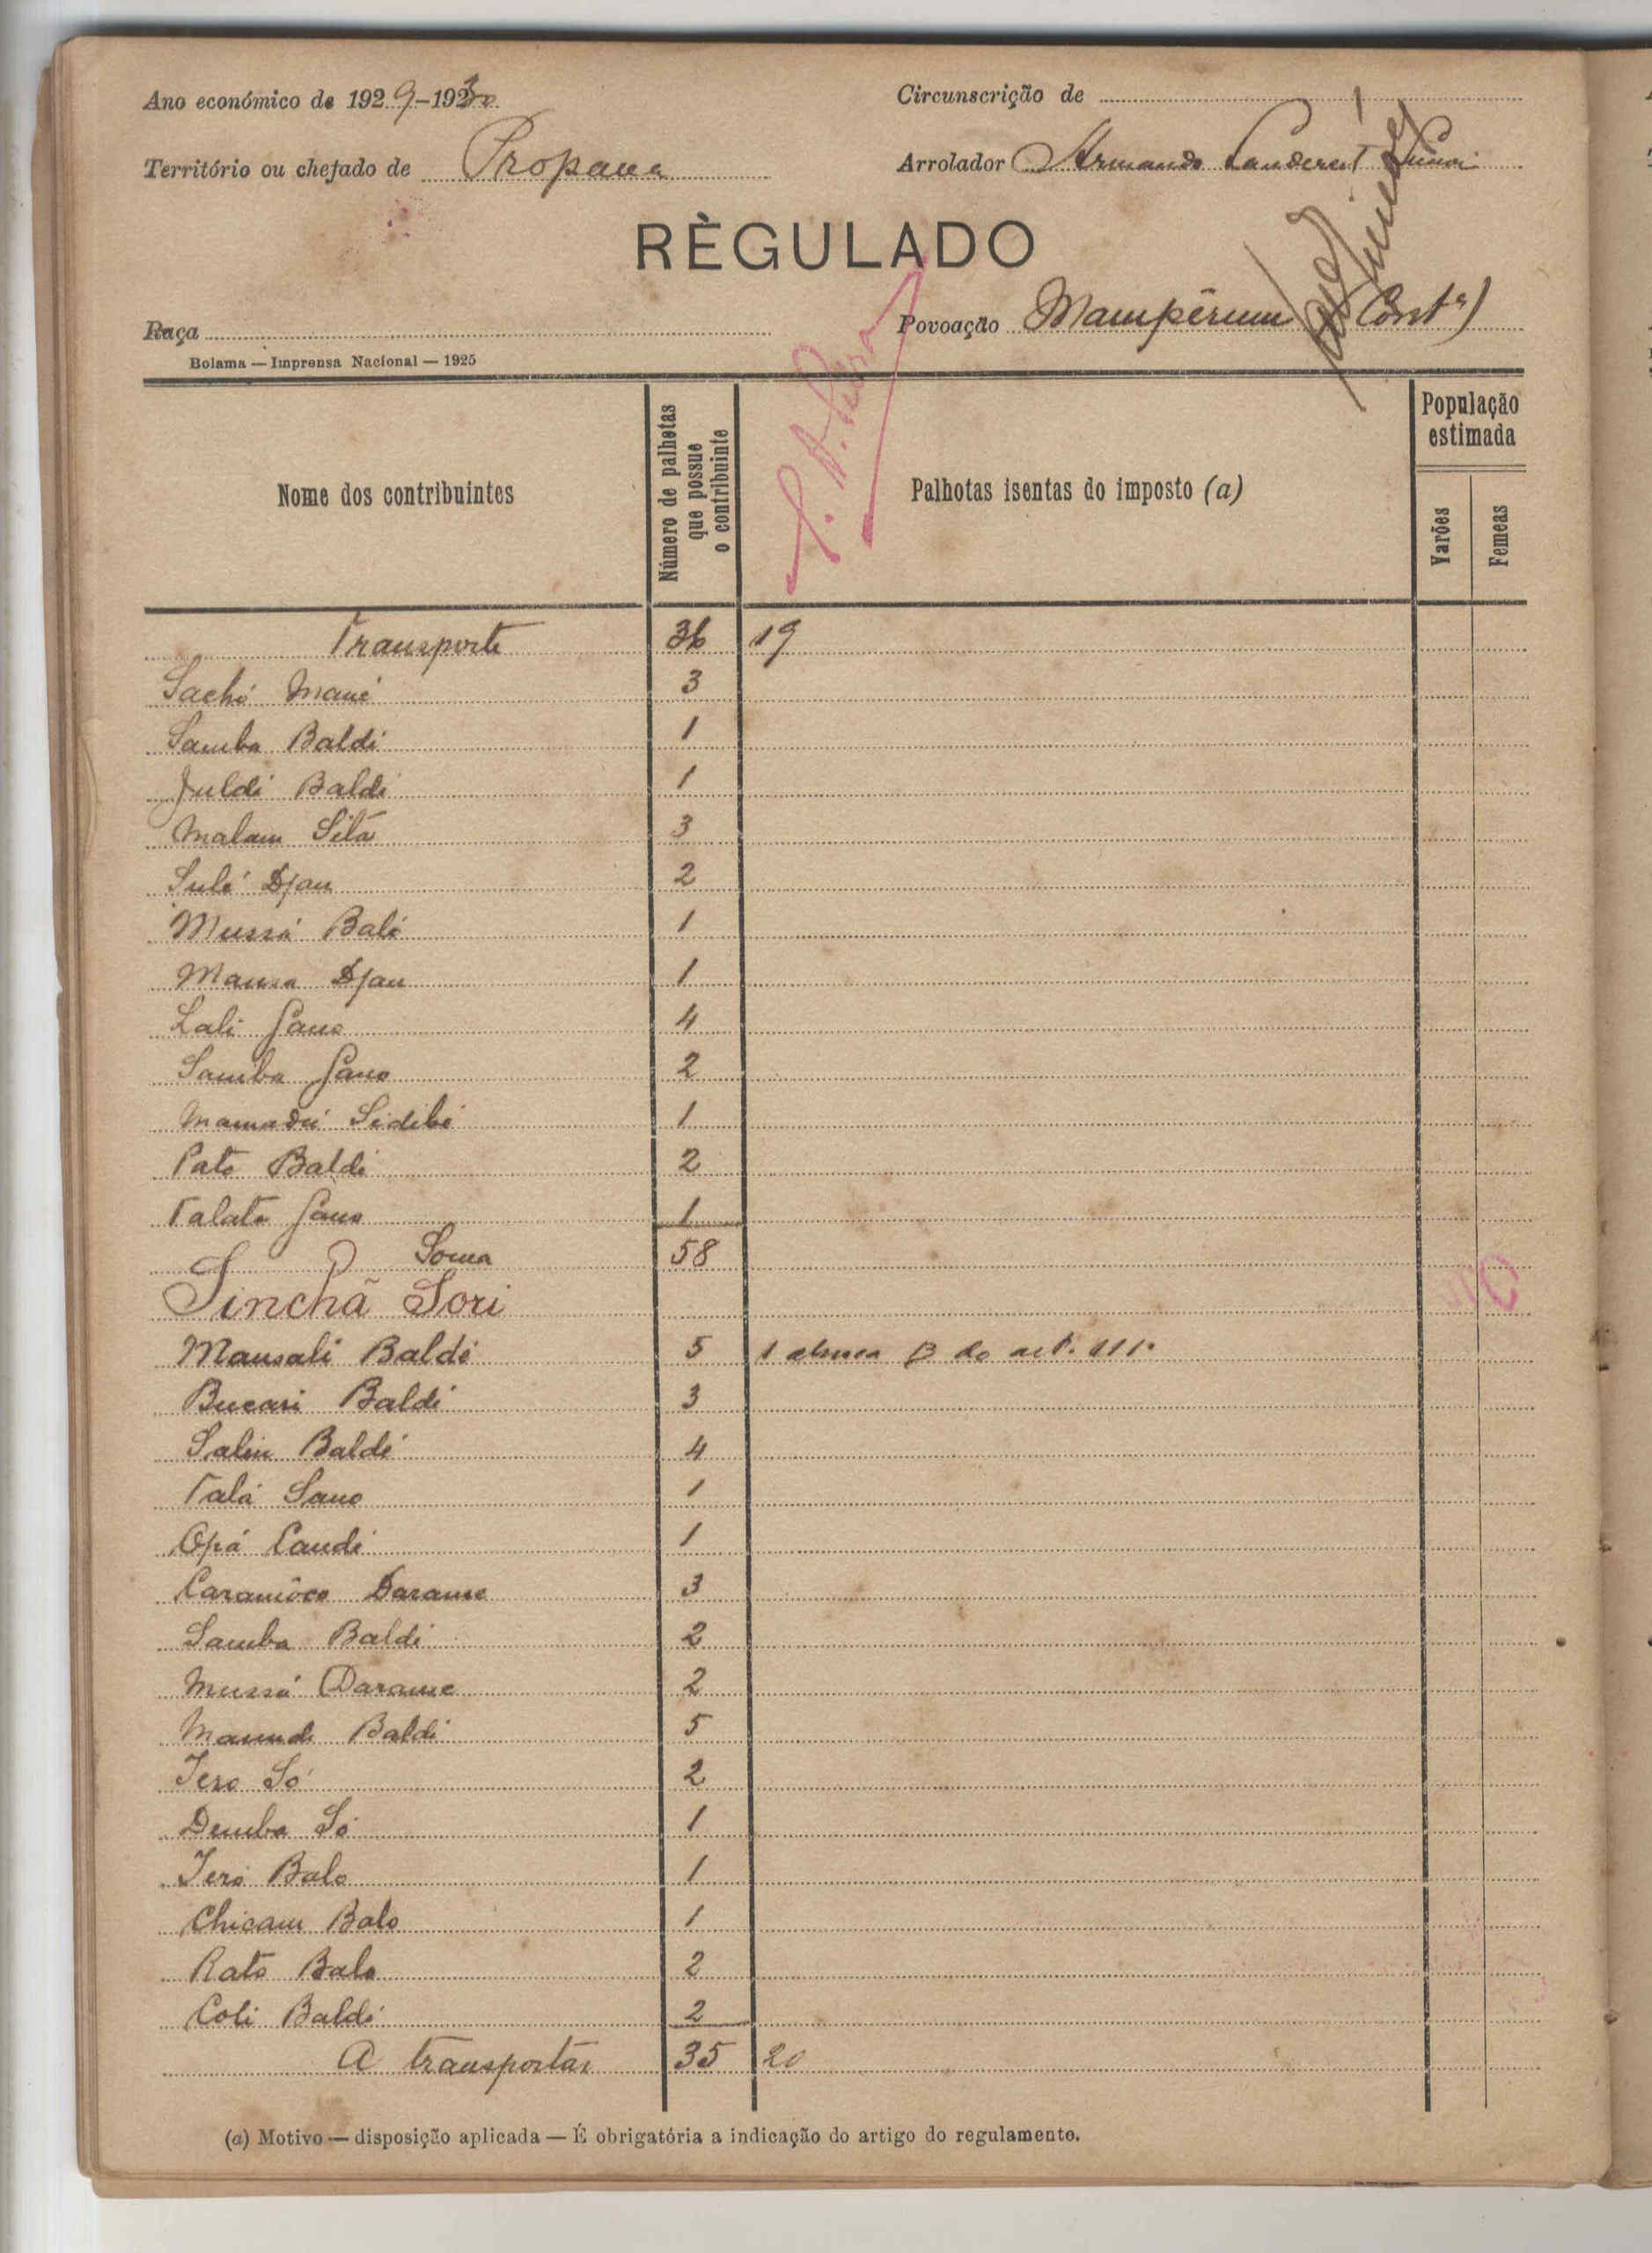 Ano económico de 1929-1930
Circunscrição de
Território ou chefado de Propana
Arrolador Armando
RÈGULADO
Raça
Povoação Mampêrum (Contª)
Bolama — Imprensa Nacional — 1925
Nome dos contribuintes
Número de palhotas que possue o contribuinte
Palhotas isentas do imposto (a)
População estimada
Varões
Femeas
Transporte 36 19
Sachó Mané 3
Samba Baldé 1
Juldé Baldé 1
Malam Sitá 3
Sulé Djau 2
Mussá Balé 1
Mansa Djau 1
Lali Gano 4
Samba Gano 2
Mamadú Sidibé 1
Pate Baldé 2
Talata Gano 1
Soma 58
Sinchã Sori
Mansali Baldé 5 1 B do art. 111º
Bucari Baldé 3
Saliu Baldé 4
Talá Sano 1
Opá Candé 1
Caramôco Darame 3
Samba Baldé 2
Mussá Darame 2
Baldé 5
Jero Só 2
Demba Só 1
Jero Balo 1
Chicam Balo 1
Rato Balo 2
Coli Baldé 2
A transportar 35 20
(a) Motivo — disposição aplicada — É obrigatória a indicação do artigo do regulamento.